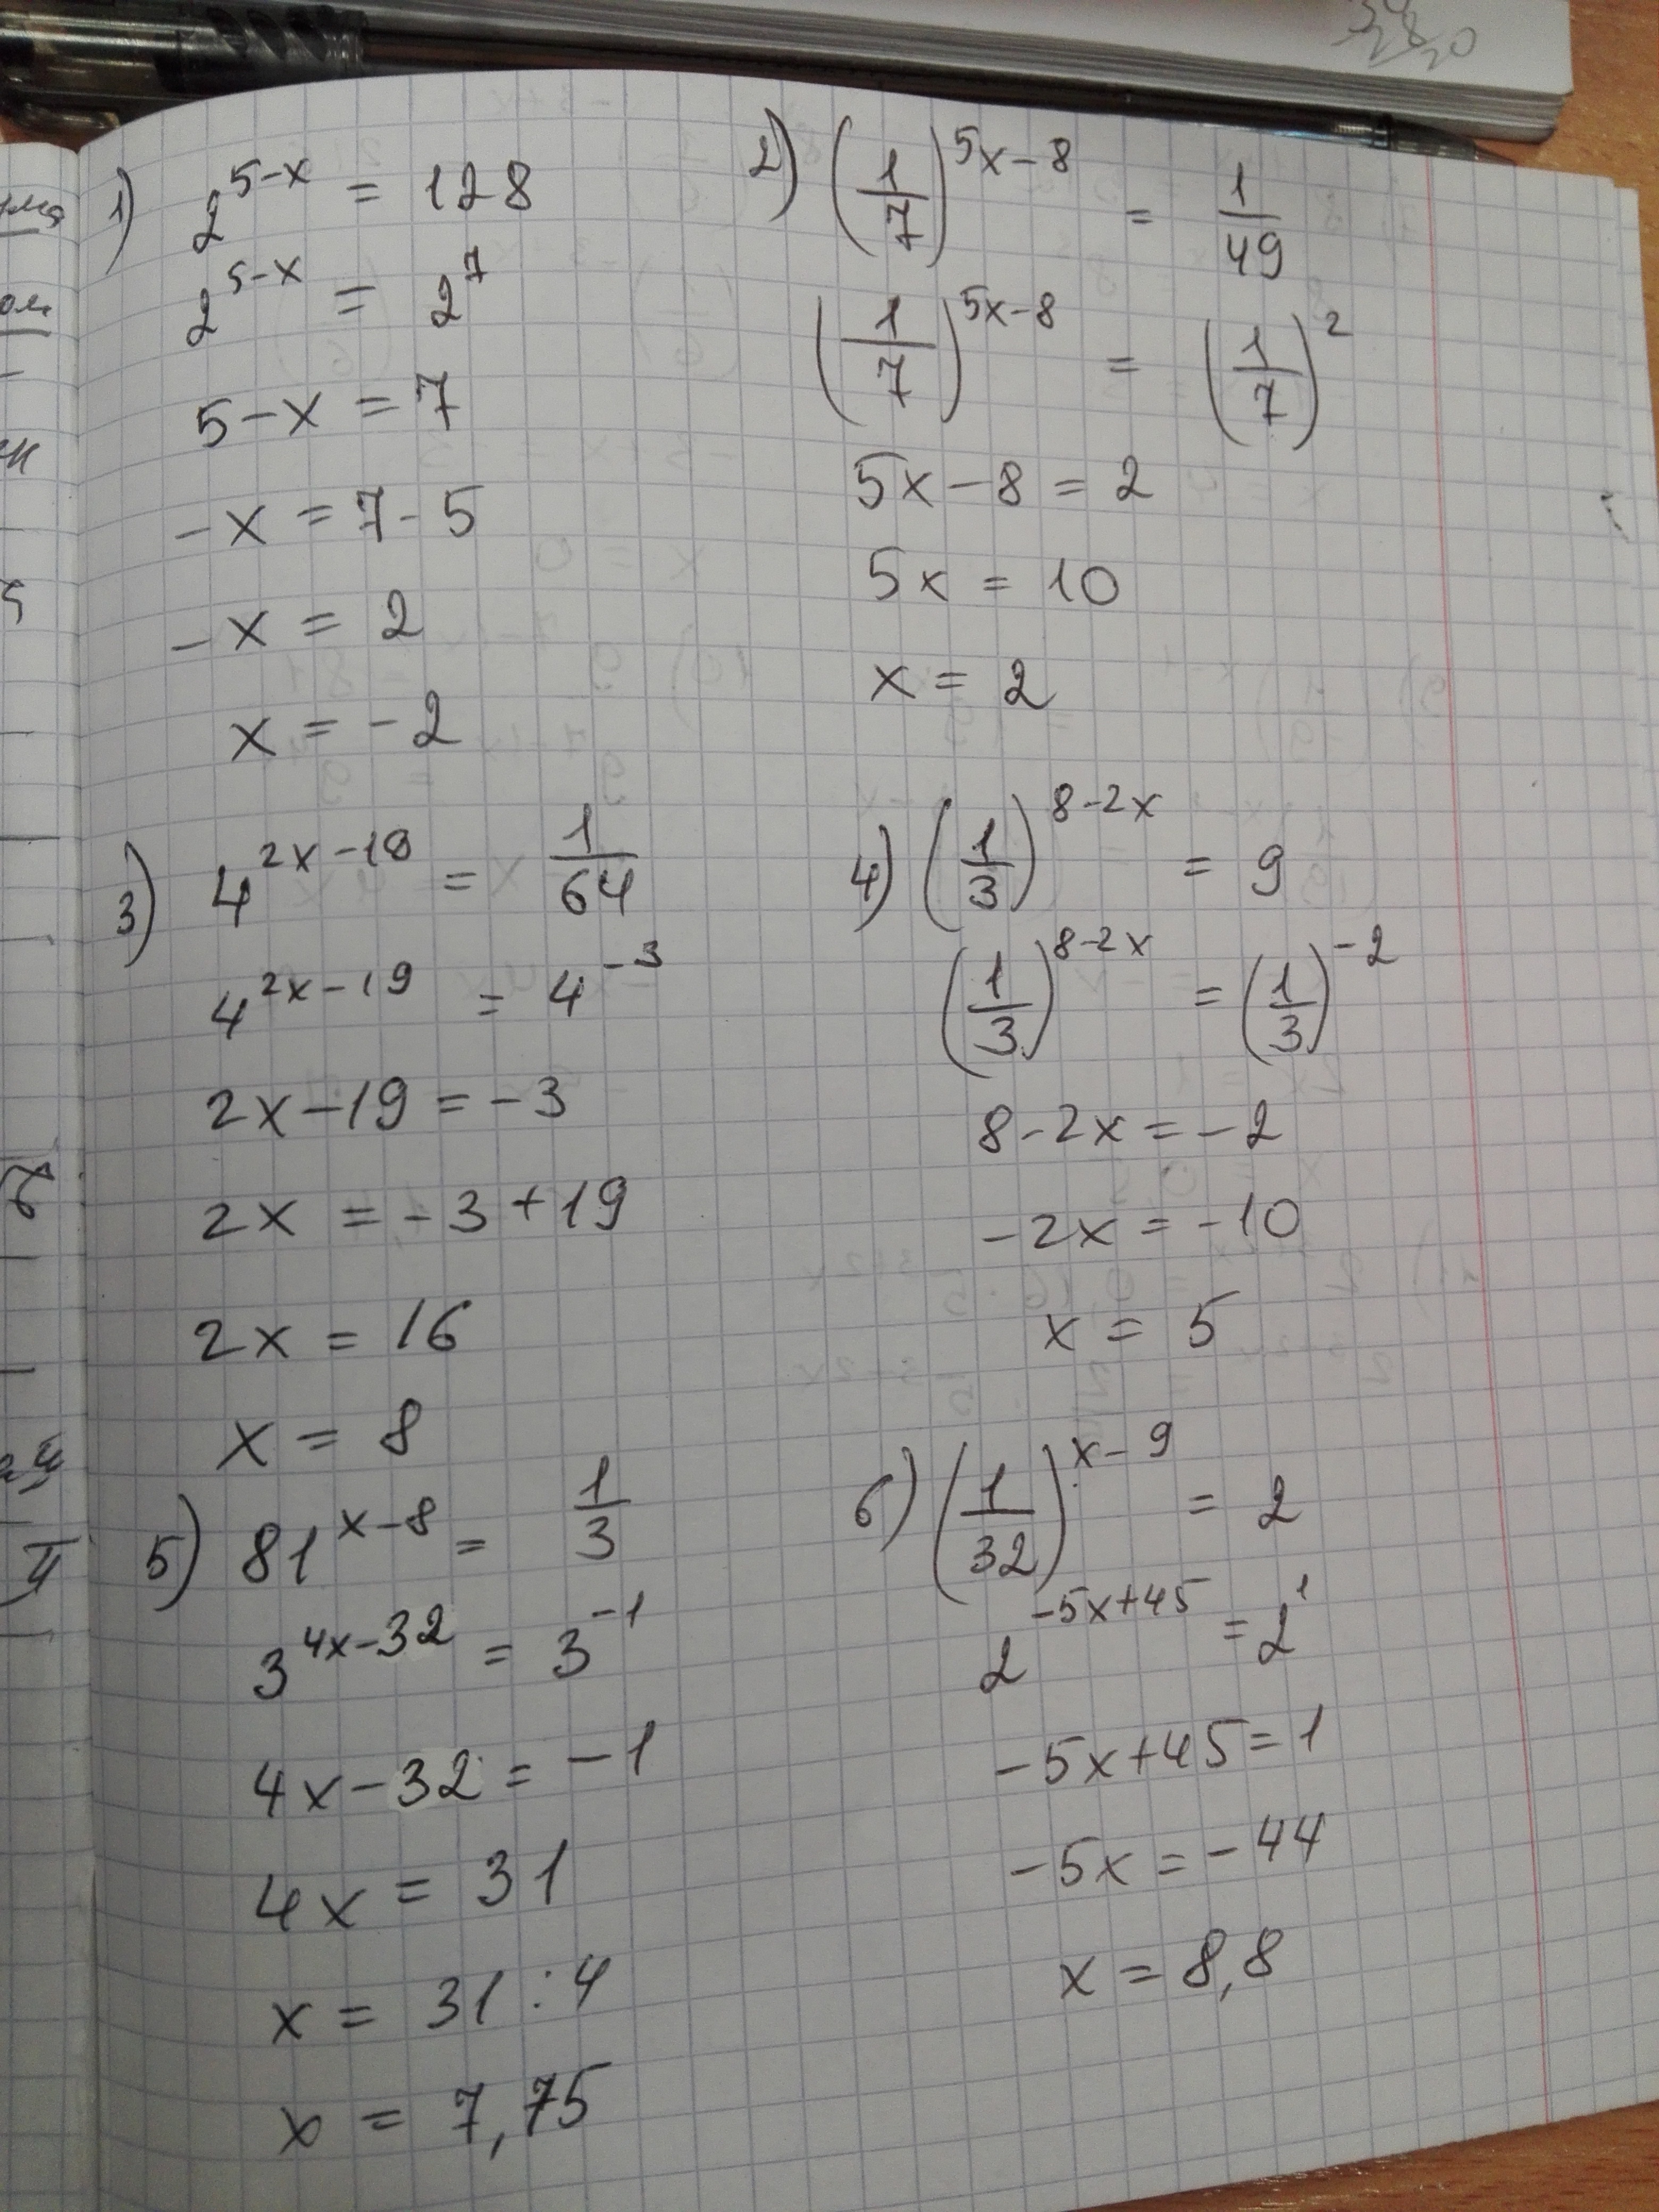 1) 2^{5-x} = 128
2^{5-x} = 2^7
5-x = 7
-x = 7-5
-x = 2
x = -2
2) (1/7)^{5x-8} = 1/49
(1/7)^{5x-8} = (1/7)^2
5x-8 = 2
5x = 10
x = 2
3) 4^{2x-19} = 1/64
4^{2x-19} = 4^{-3}
2x-19 = -3
2x = -3+19
2x = 16
x = 8
4) (1/3)^{8-2x} = 9
(1/3)^{8-2x} = (1/3)^{-2}
8-2x = -2
-2x = -10
x = 5
5) 81^{x-8} = 1/3
3^{4x-32} = 3^{-1}
4x-32 = -1
4x = 31
x = 31:4
x = 7,75
6) (1/32)^{x-9} = 2
2^{-5x+45} = 2^1
-5x+45 = 1
-5x = -44
x = 8,8